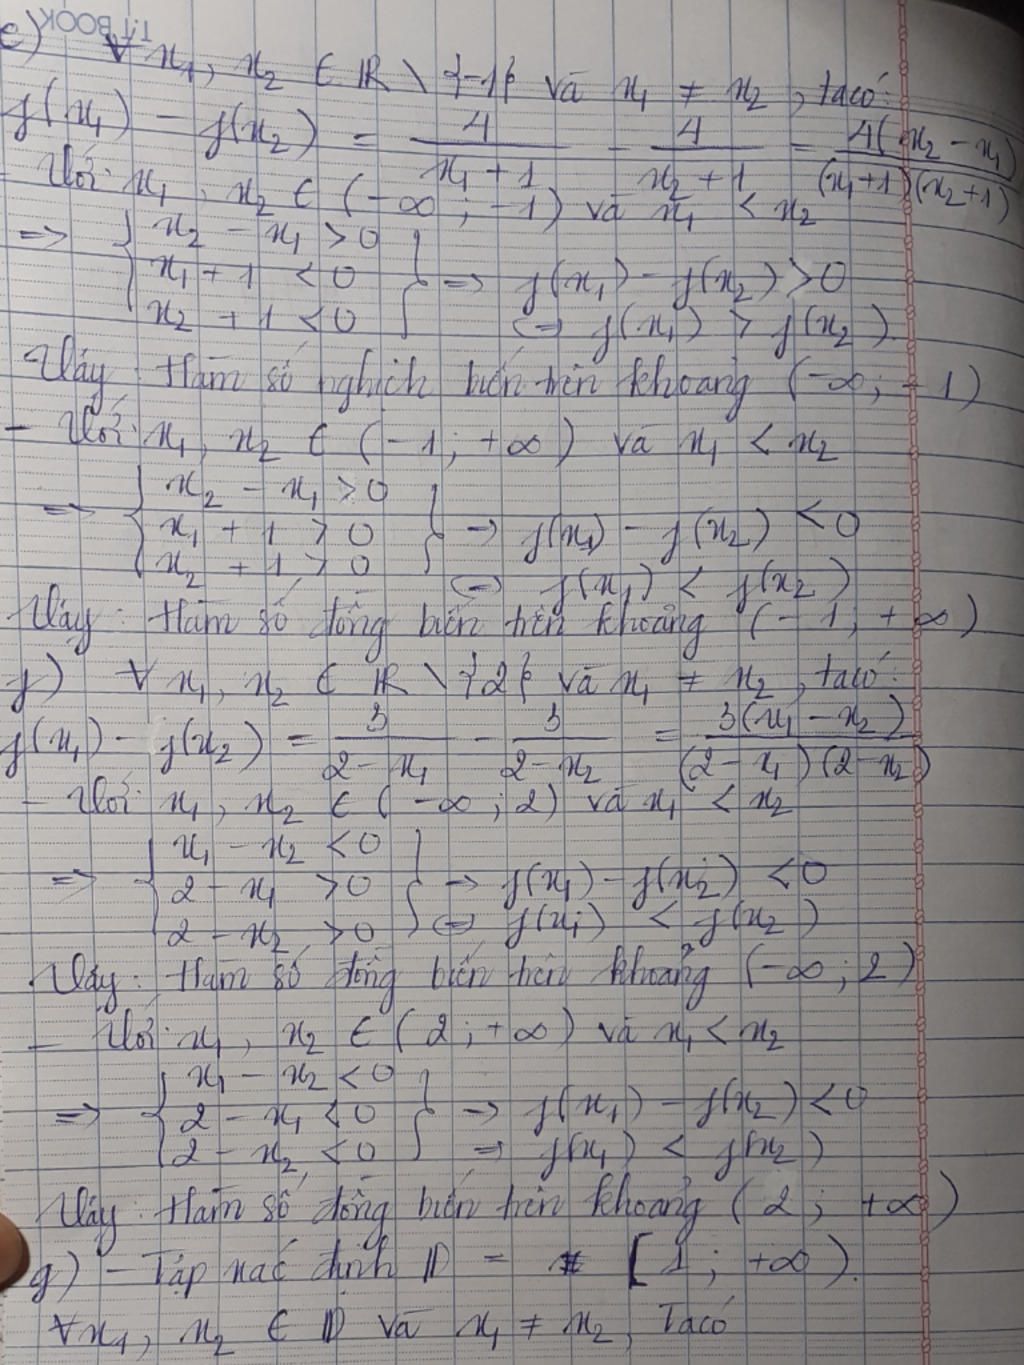 TiTBOOK
e) ∀ x₁, x₂ ∈ ℝ \ {-1} và x₁ ≠ x₂, ta có:
f(x₁) - f(x₂) = 4/(x₁ + 1) - 4/(x₂ + 1) = 4(x₂ - x₁)/((x₁+1)(x₂+1))
- Với x₁, x₂ ∈ (-∞; -1) và x₁ < x₂
=> { x₂ - x₁ > 0
x₁ + 1 < 0 } => f(x₁) - f(x₂) > 0
x₂ + 1 < 0 <=> f(x₁) > f(x₂)
Vậy: Hàm số nghịch biến trên khoảng (-∞; -1)
- Với x₁, x₂ ∈ (-1; +∞) và x₁ < x₂
=> { x₂ - x₁ > 0
x₁ + 1 > 0 } => f(x₁) - f(x₂) < 0
x₂ + 1 > 0 <=> f(x₁) < f(x₂)
Vậy: Hàm số đồng biến trên khoảng (-1; +∞)
f) ∀ x₁, x₂ ∈ ℝ \ {2} và x₁ ≠ x₂, ta có:
f(x₁) - f(x₂) = 3/(2 - x₁) - 3/(2 - x₂) = 3(x₁ - x₂)/((2 - x₁)(2 - x₂))
- Với x₁, x₂ ∈ (-∞; 2) và x₁ < x₂
=> { x₁ - x₂ < 0
2 - x₁ > 0 } => f(x₁) - f(x₂) < 0
2 - x₂ > 0 <=> f(x₁) < f(x₂)
Vậy: Hàm số đồng biến trên khoảng (-∞; 2)
- Với x₁, x₂ ∈ (2; +∞) và x₁ < x₂
=> { x₁ - x₂ < 0
2 - x₁ < 0 } => f(x₁) - f(x₂) < 0
2 - x₂ < 0 => f(x₁) < f(x₂)
Vậy: Hàm số đồng biến trên khoảng (2; +∞)
g) - Tập xác định D = [1; +∞).
∀x₁, x₂ ∈ D và x₁ ≠ x₂, Ta có